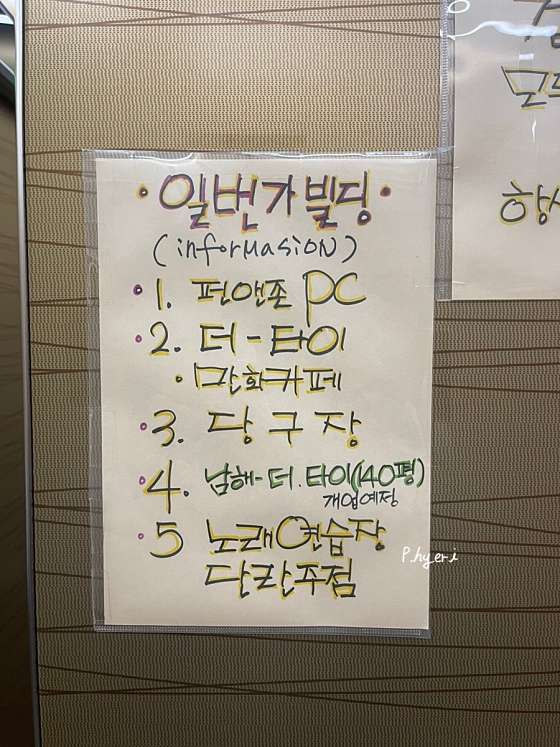 • 일번가 빌딩 •
(informasion)
• 1. 펀앤존 PC
• 2. 더-타이
• 만화카페
• 3. 당구장
• 4. 남해-더.타이(140평)
개업예정
• 5 노래연습장
단란주점
P.hyeri
모두